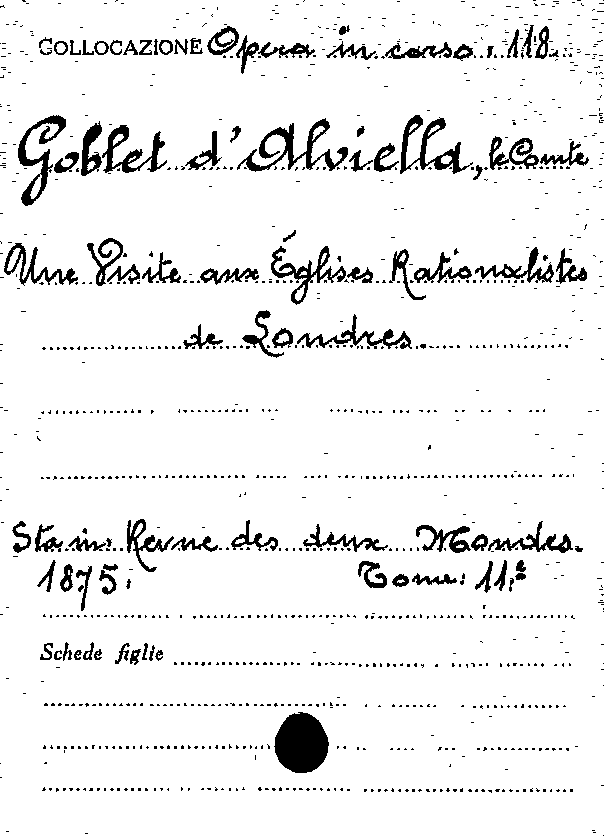 COLLOCAZIONE Opera in corso: 118.
Goblet d'Alviella, le Comte
Une Visite aux Églises Rationalistes
de Londres.
Sta in: Revue des deux Mondes.
1875. Tome: 11.º
Schede figlie